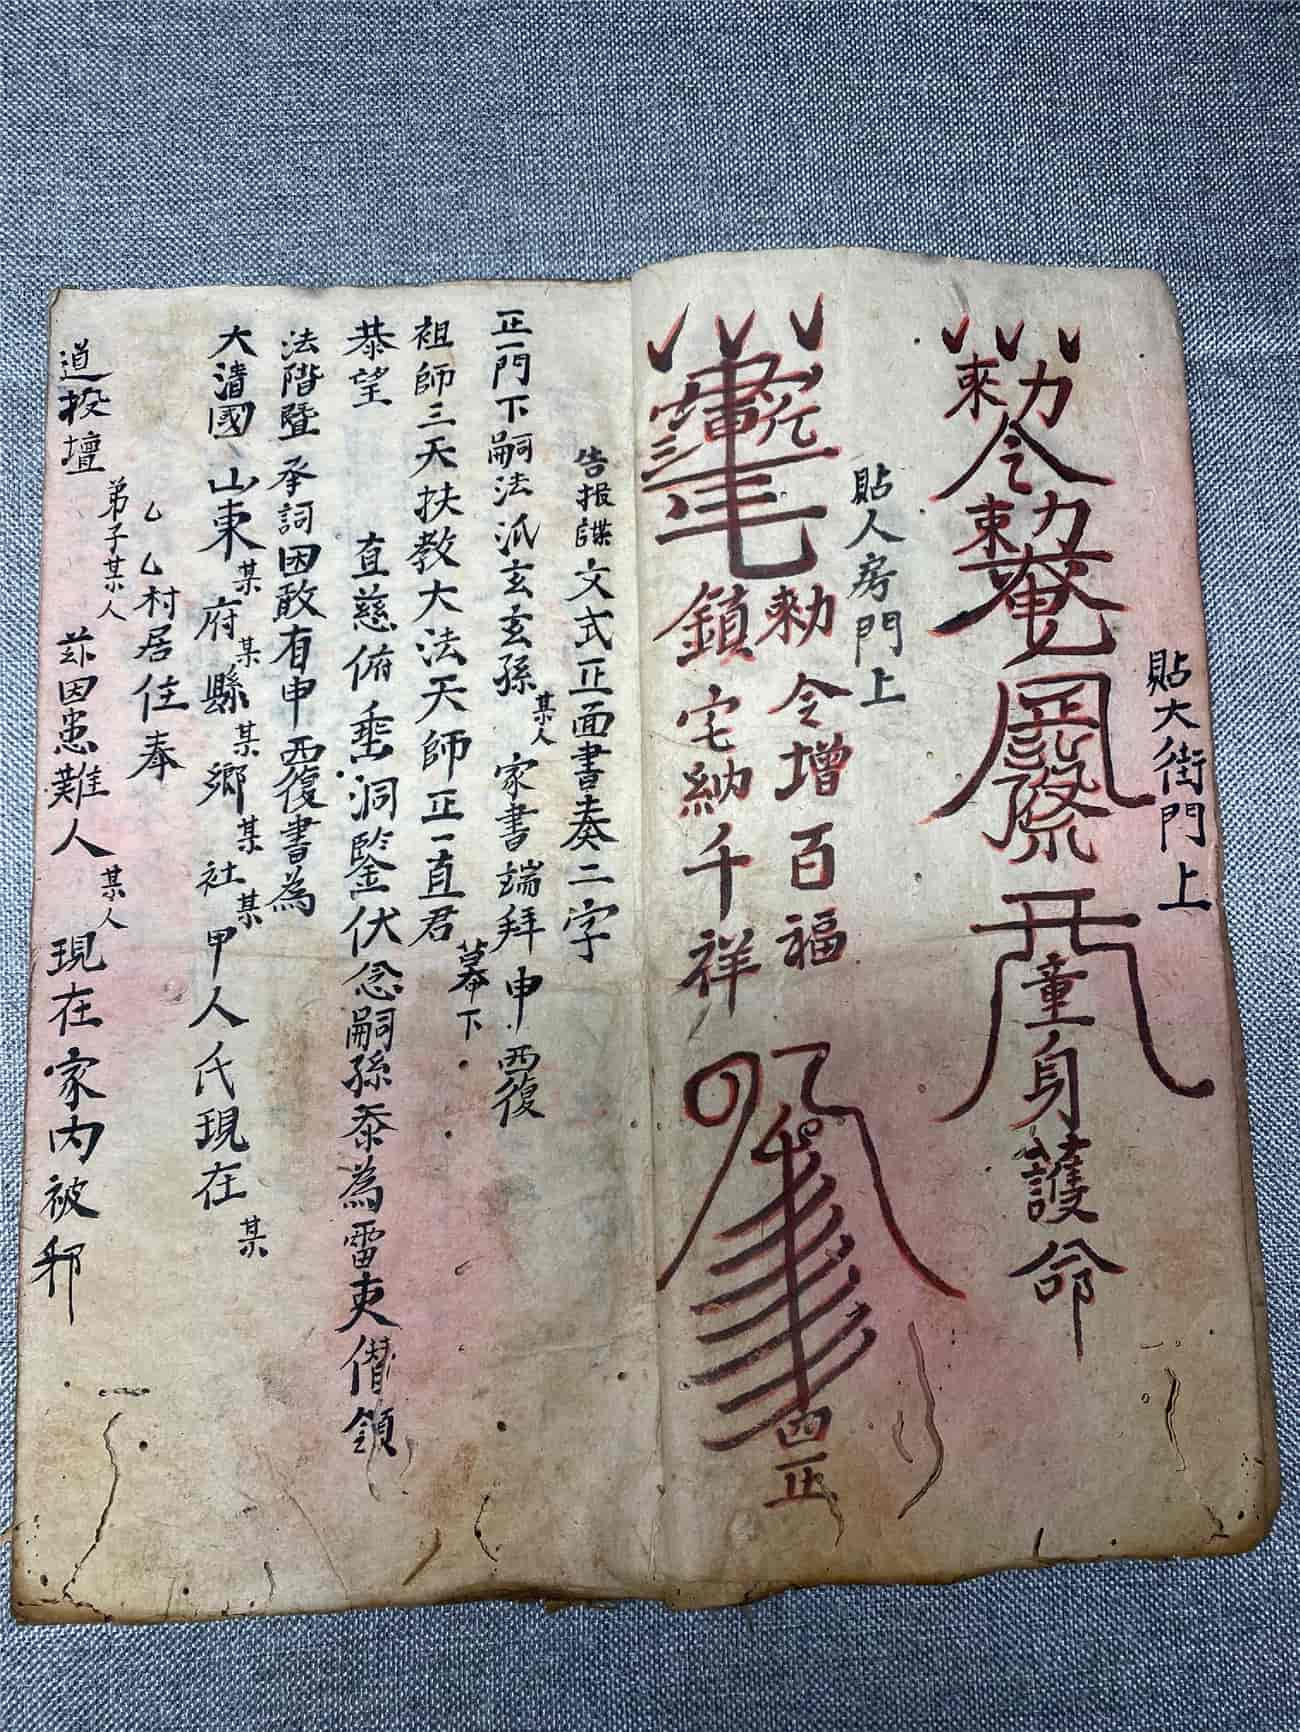 貼大街門上
勅令
童身護命
貼人房門上
勅令增百福
鎮宅納千祥
四正
告报牒文式正面書奏二字
正一門下嗣法派玄玄孫某人家書端拜申西復
祖師三天扶教大法天師正一直君幕下
恭望
直慈俯垂洞鑒伏念嗣孫忝為雷吏僣領
法階暨承詞因敢有申西復書為
大清國山東某府某縣某鄉某社某甲人氏現在某
乙乙村居住奉
道投壇弟子某人茲因患難人某人現在家內被邪